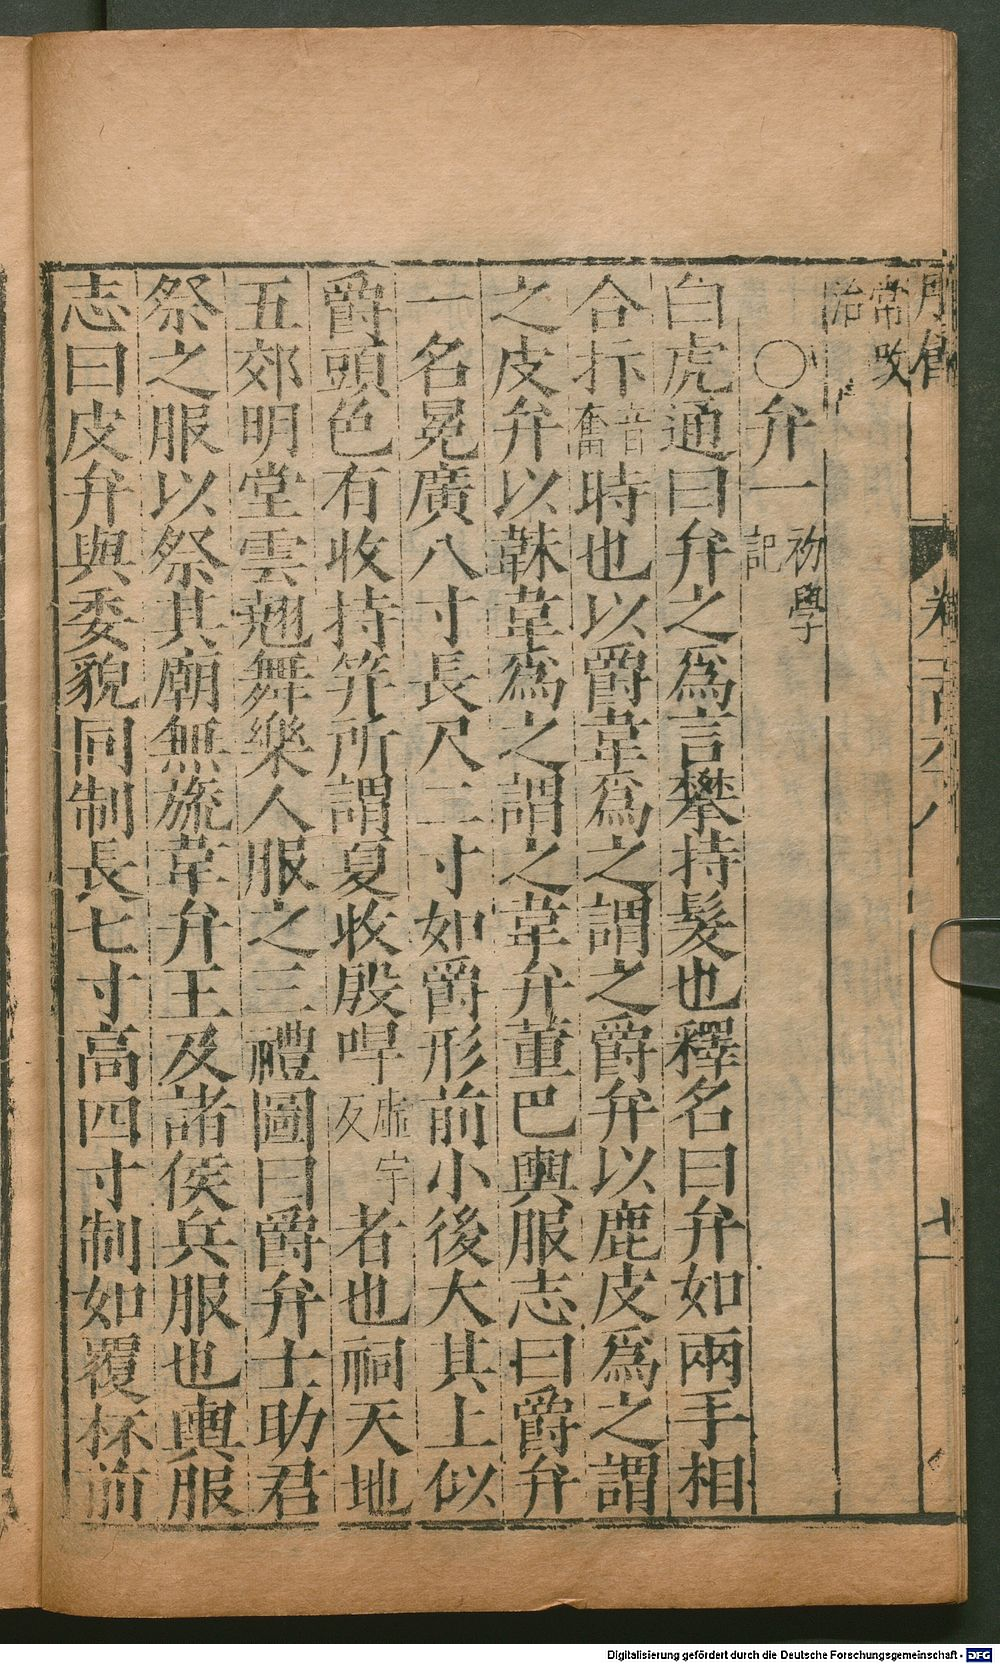 卷一百六八
十一
常改
治
○弁一 初學記
白虎通曰弁之爲言攀持髮也釋名曰弁如兩手相
合抃音奮時也以爵韋爲之謂之爵弁以鹿皮爲之謂
之皮弁以韎韋爲之謂之韋弁董巴輿服志曰爵弁
一名冕廣八寸長尺二寸如爵形前小後大其上似
爵頭色有收持笄所謂夏收殷哻虛宇反者也祠天地
五郊明堂雲翹舞樂人服之三禮圖曰爵弁士助君
祭之服以祭其廟無旒韋弁王及諸侯兵服也輿服
志曰皮弁與委貌同制長七寸高四寸制如覆杯前
Digitalisierung gefördert durch die Deutsche Forschungsgemeinschaft - DFG